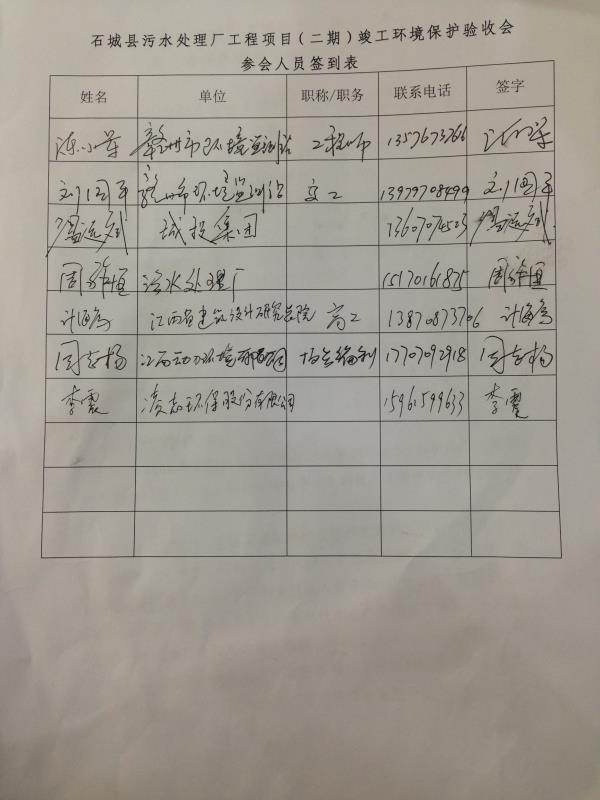 石城县污水处理厂工程项目(二期)竣工环境保护验收会
参会人员签到表
姓名 单位 职称/职务 联系电话 签字
陈小莘 赣州市环境监测站 工程师 1357673766
刘国平 赣州市环境监测站 高工 13979708499 刘国平
城投集团 13607074523
周 恒 污水处理厂 15170161875 周 恒
计海鸟 江西省建筑设计研究总院 高工 13870873706 计海鸟
周志杨 江西动力环境 17707092918 周志杨
李霞 凌志环保股份有限公司 15961599633 李霞